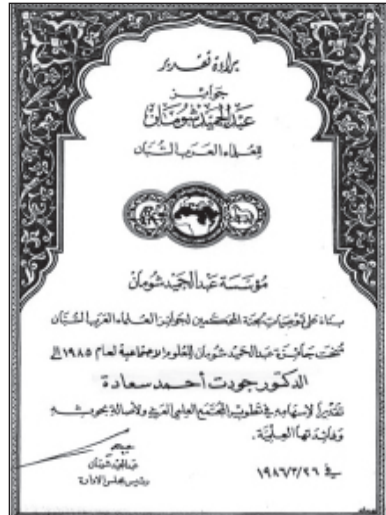 براءة تقدير
جوائز
عبد الحميد شومان
للعلماء العرب الشبان
مؤسسة عبد الحميد شومان
بناء على توصيات لجنة المحكمين لجوائز العلماء العرب الشبان
منحت جائزة عبد الحميد شومان للعلوم الاجتماعية لعام ١٩٨٥ إلى
الدكتور جودت أحمد سعادة
تقديراً لإسهامه في تطوير المجتمع العلمي العربي ولأصالة بحوثه
وفائدتها العلمية.
عبد المجيد شومان
رئيس مجلس الإدارة
في ١٩٨٦/٣/٢٦